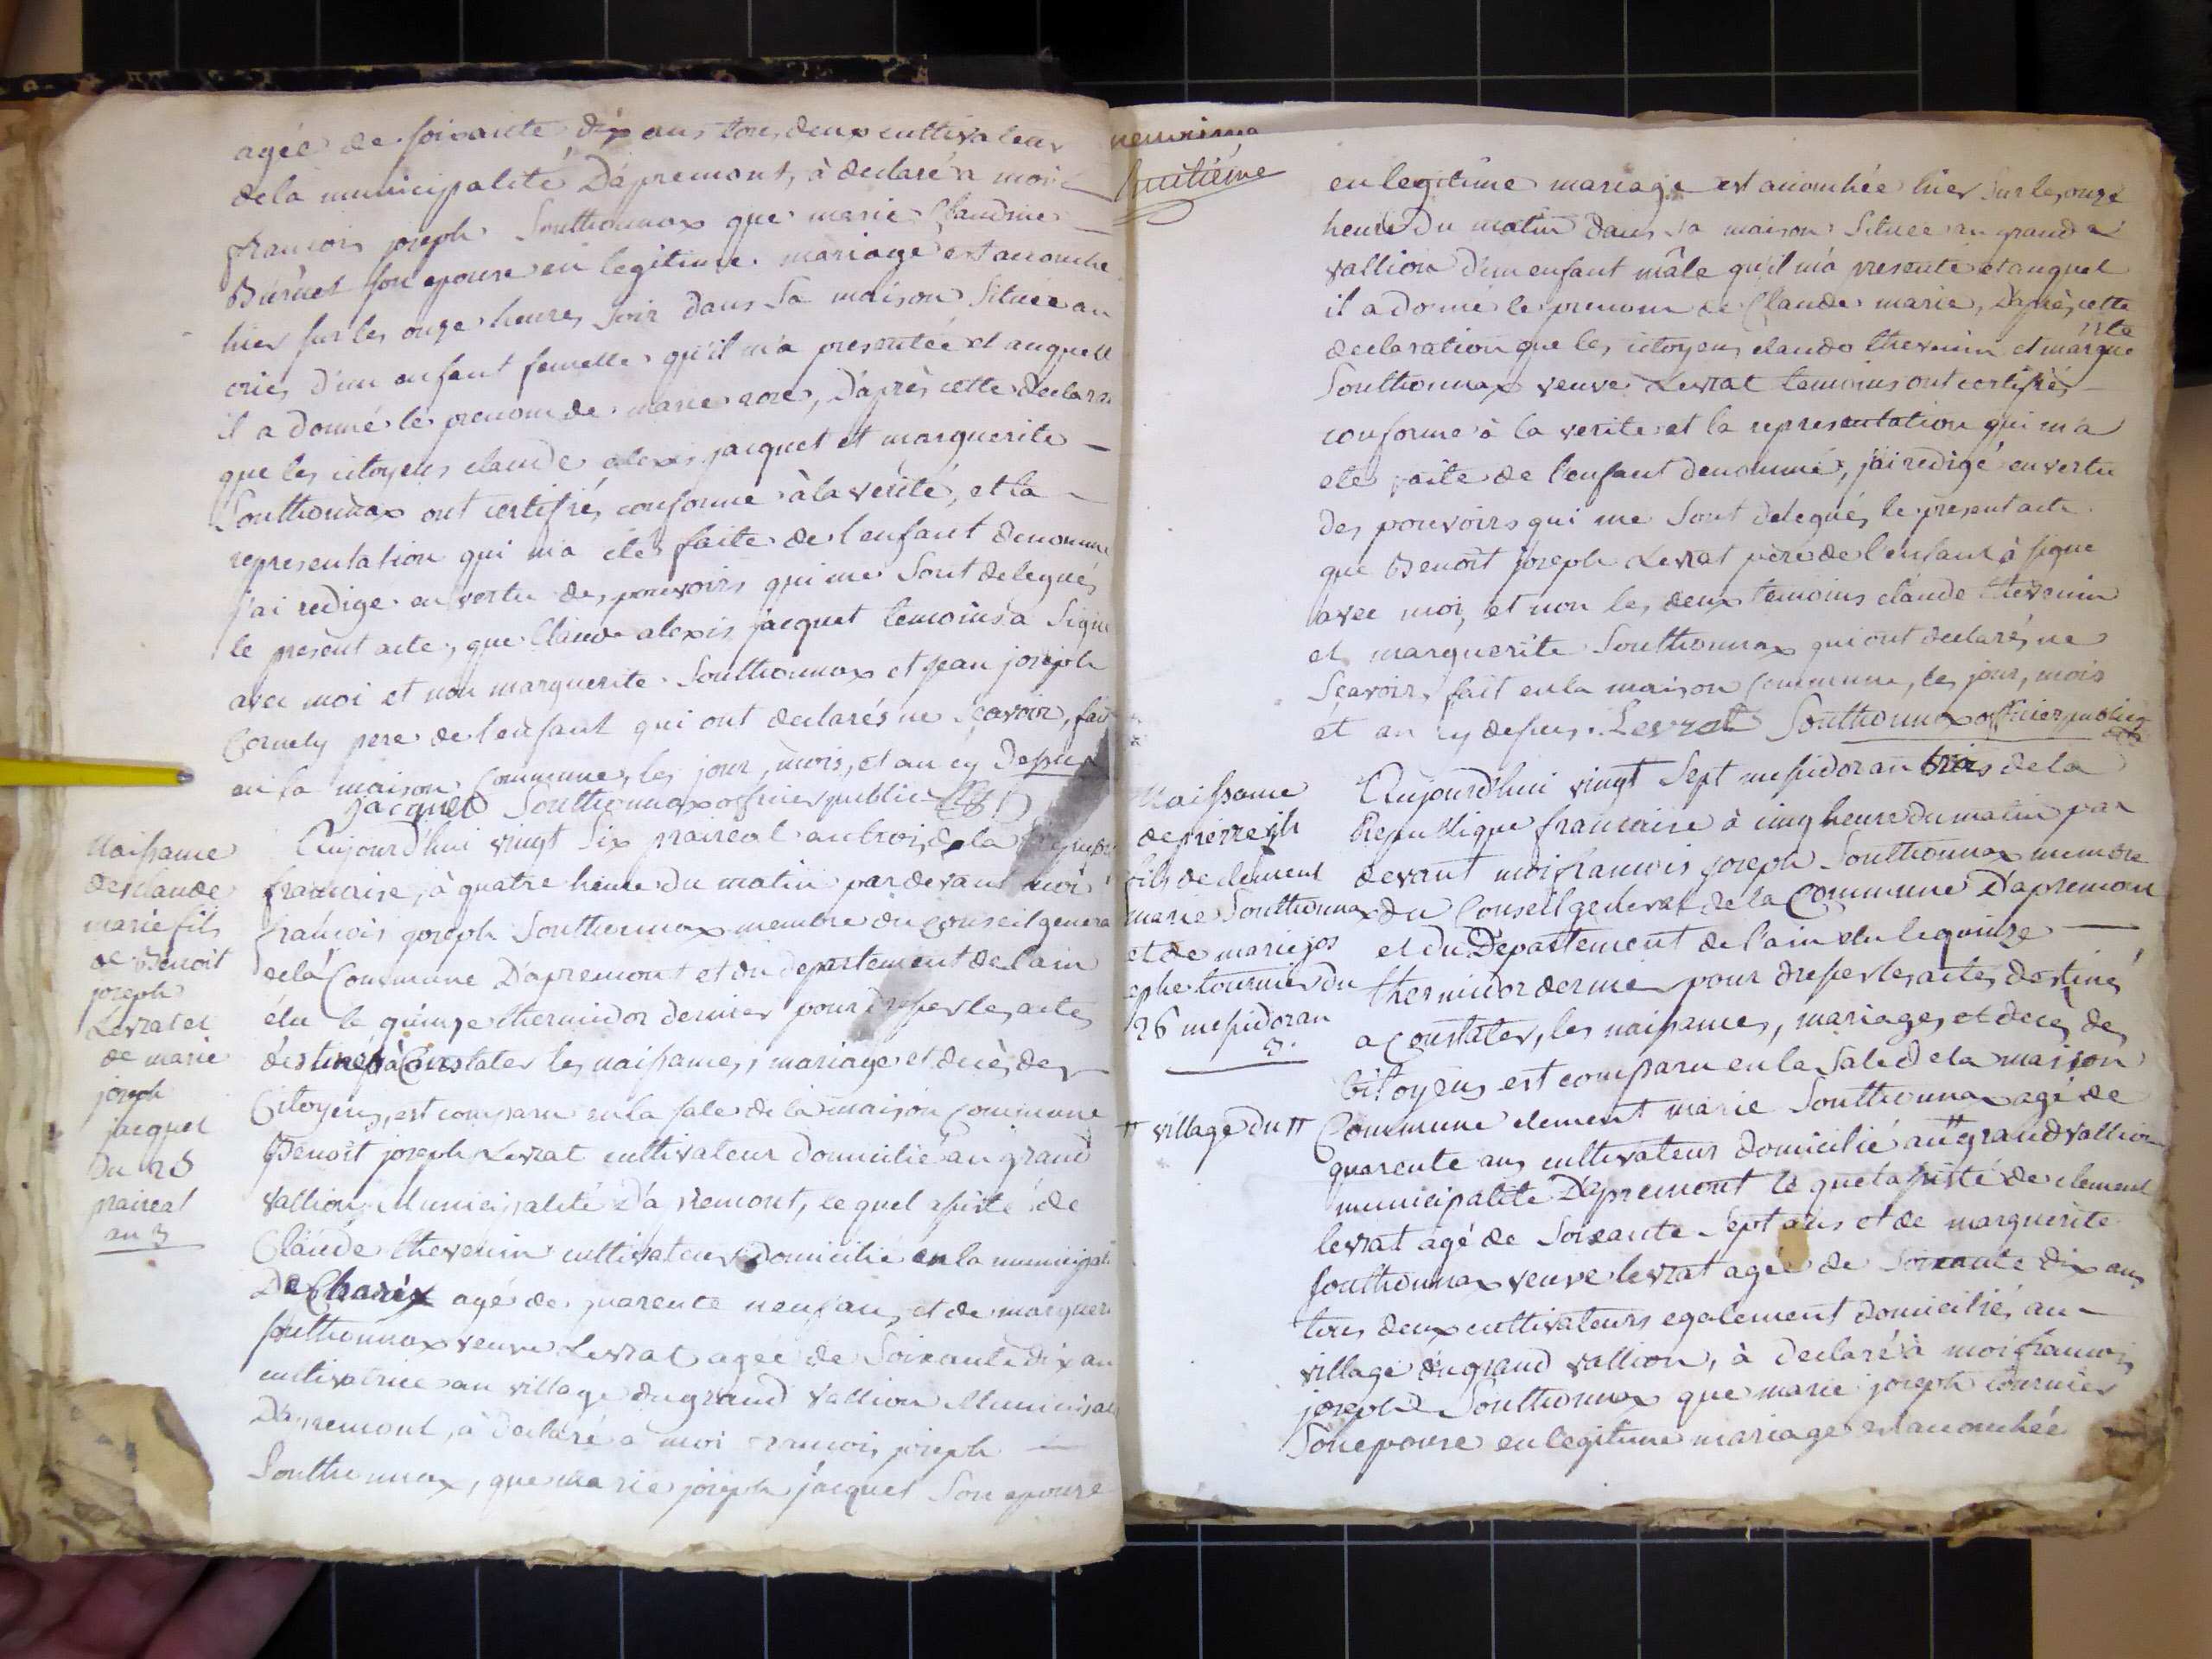 agée de soixante dix ans tous deux cultivateur
de la municipalité Dapremont, à declaré a moi
francois joseph Southonnax que marie Claudine
Burnet son epouse en legitime mariage est accouche
hier sur les onze heures soir dans sa maison située au
cries d'un enfant femelle qu'il m'a presentée et auquell
il a donné le prenom de marie rose, D'après cette declara
que les citoyens claude alexis jacquet et marguerite
Southonnax ont certifiés conforme à la verité, et la
representation qui m'a été faite de l'enfant denommé
j'ai redigé en vertu des pouvoirs qui me sont delegués
le present acte, que Claude alexis jacquet temoins a signé
avec moi et non marguerite Southonnax et jean joseph
Cornely pere de l'enfant qui ont declarés ne sçavoir, fait
en la maison Commune, les jour, mois, et an cy Dessus
jacquet Southonnax officier public
Naissance
de claude
marie fils
de Benoit
joseph
Levrat et
de marie
joseph
jacquet
Du 25
praireal
an 3
Aujourd'hui vingt six praireal an trois de la Republi
francaise, à quatre heure du matin par devant moi
francois joseph Southonnax membre du Conseil genera
de la Commune D'apremont et du departement de l'ain
élu le quinze thermidor dernier pour dresser les actes
destinés à Constater les naissances, mariages et decès des
Citoyens, est comparu en la sale de la maison Commune
Benoit joseph Levrat cultivateur domicilié au grand
vallion Municipalité D'apremont, lequel assisté de
Claude thevenin cultivateur domicilié en la municipali
De Charix agé de quarente neuf ans, et de marguer
southonnax veuve Levrat agée de soixante dix an
cultivatrice au village du grand vallion Municipal
D'apremont, à declaré a moi francois joseph
Southonnax, que marie joseph jacquet son epouse
huitiéme
en legitime mariage est accouchée hier sur les onze
heure Du matin dans sa maison située au grand
vallion d'un enfant mâle qu'il m'a presenté et auquel
il a donné le prenom de Claude marie, D'après cette
declaration que les citoyens claude thevenin et margte
Southonnax veuve Levrat temoins ont certifiés
conforme à la verité et la representation qui m'a
eté faite de l'enfant denommé, j'ai redigé en vertu
des pouvoirs qui me sont delegués le present acte
que Benoit joseph Levrat père de l'enfant à signé
avec moi, et non les deux temoins claude thevenin
et marguerite Southonnax qui ont declarés ne
Sçavoir, fait en la maison Commune, les jour, mois
et an cy dessus. Levrat Southonnax officier public
Naissance
de pierre
fils de clement
marie Southonnax
et de marie jos
ephe tournier du
26 messidor an
3.
Aujourd'hui vingt sept messidor an trois de la
Republique francaise à cinq heure du matin par
devant moi francois joseph Southonnax membre
du Conseil general de la Commune D'apremont
et du Departement de l'ain elu le quinze
thermidor dernier pour dresser les actes destinés
a constater, les naissances, mariages et deces des
Citoyens est comparu en la Sale de la maison
Commune clement marie Southonnax agé de
quarente ans cultivateur domicilié au grand vallion
" village du "
municipalité D'apremont lequel assisté de clement
levrat agé de soixante sept ans et de marguerite
southonnax veuve levrat agée de soixante dix ans
tous deux cultivateurs egalement domiciliés au
village du grand vallion, à declaré à moi francois
joseph Southonnax que marie joseph tournier
Son epouse en legitime mariage est accouchée